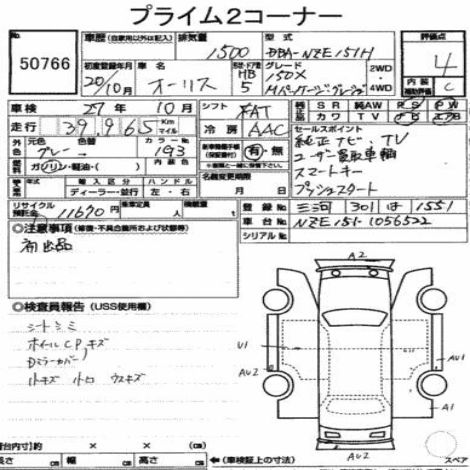 プライム2コーナー
50766
車歴 (自家用以外は記入)
排気量 1500
型式 DBA-NZE151H
評価点 4
初度登録年月 20/10月
車名 オーリス
型・ドア数 HB 5
グレード 150X
Mパッケージ
2WD・4WD
内装補助評価 C
車検 27年 10月
シフト FAT
SR 純AW PS PW
カワ TV ナビ エアB
走行 39,965 Km マイル
冷房 AAC
セールスポイント
純正ナビ・TV
ユーザー買取車輌
スマートキー
プッシュスタート
外元色 グレー
色替
カラーNo. 193
新車時保証書 (保証書付) 有・無
燃料 ガソリン・軽油・( )
内装色
輸入車 年式
輸入区分 ディーラー・並行
ハンドル 左・右
名義変更期限 月 日
リサイクル預託金 11670円
乗車定員 人
積載量 t
登録No. 三河 301 は 1551
車台No. NZE151-1056522
シリアルNo.
◎注意事項 (修復・不具合箇所および状態等)
初出品
◎検査員報告 (USS使用欄)
シートシミ
ホイールCPキズ
Dミラーカバー
A2
U1
AU2
AU2
A1
AU2
荷台内寸 × × (cm)
長さ (cm) 幅 (cm) 高さ (cm) ←(車検証上の寸法)
スペア